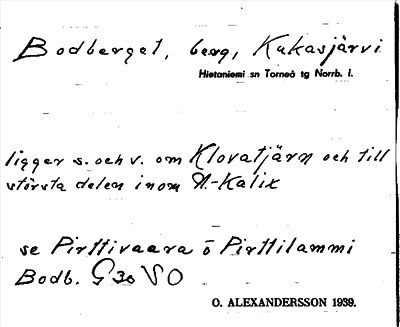 Bodberget, berg, Kukasjärvi
Hietaniemi sn Torneå tg Norrb. l.
ligger s. och v. om Klovatjärn och till
största delen inom N.-Kalix
se Pirttivaara o Pirttilammi
Bodb. G 30 V O
O. ALEXANDERSSON 1939.